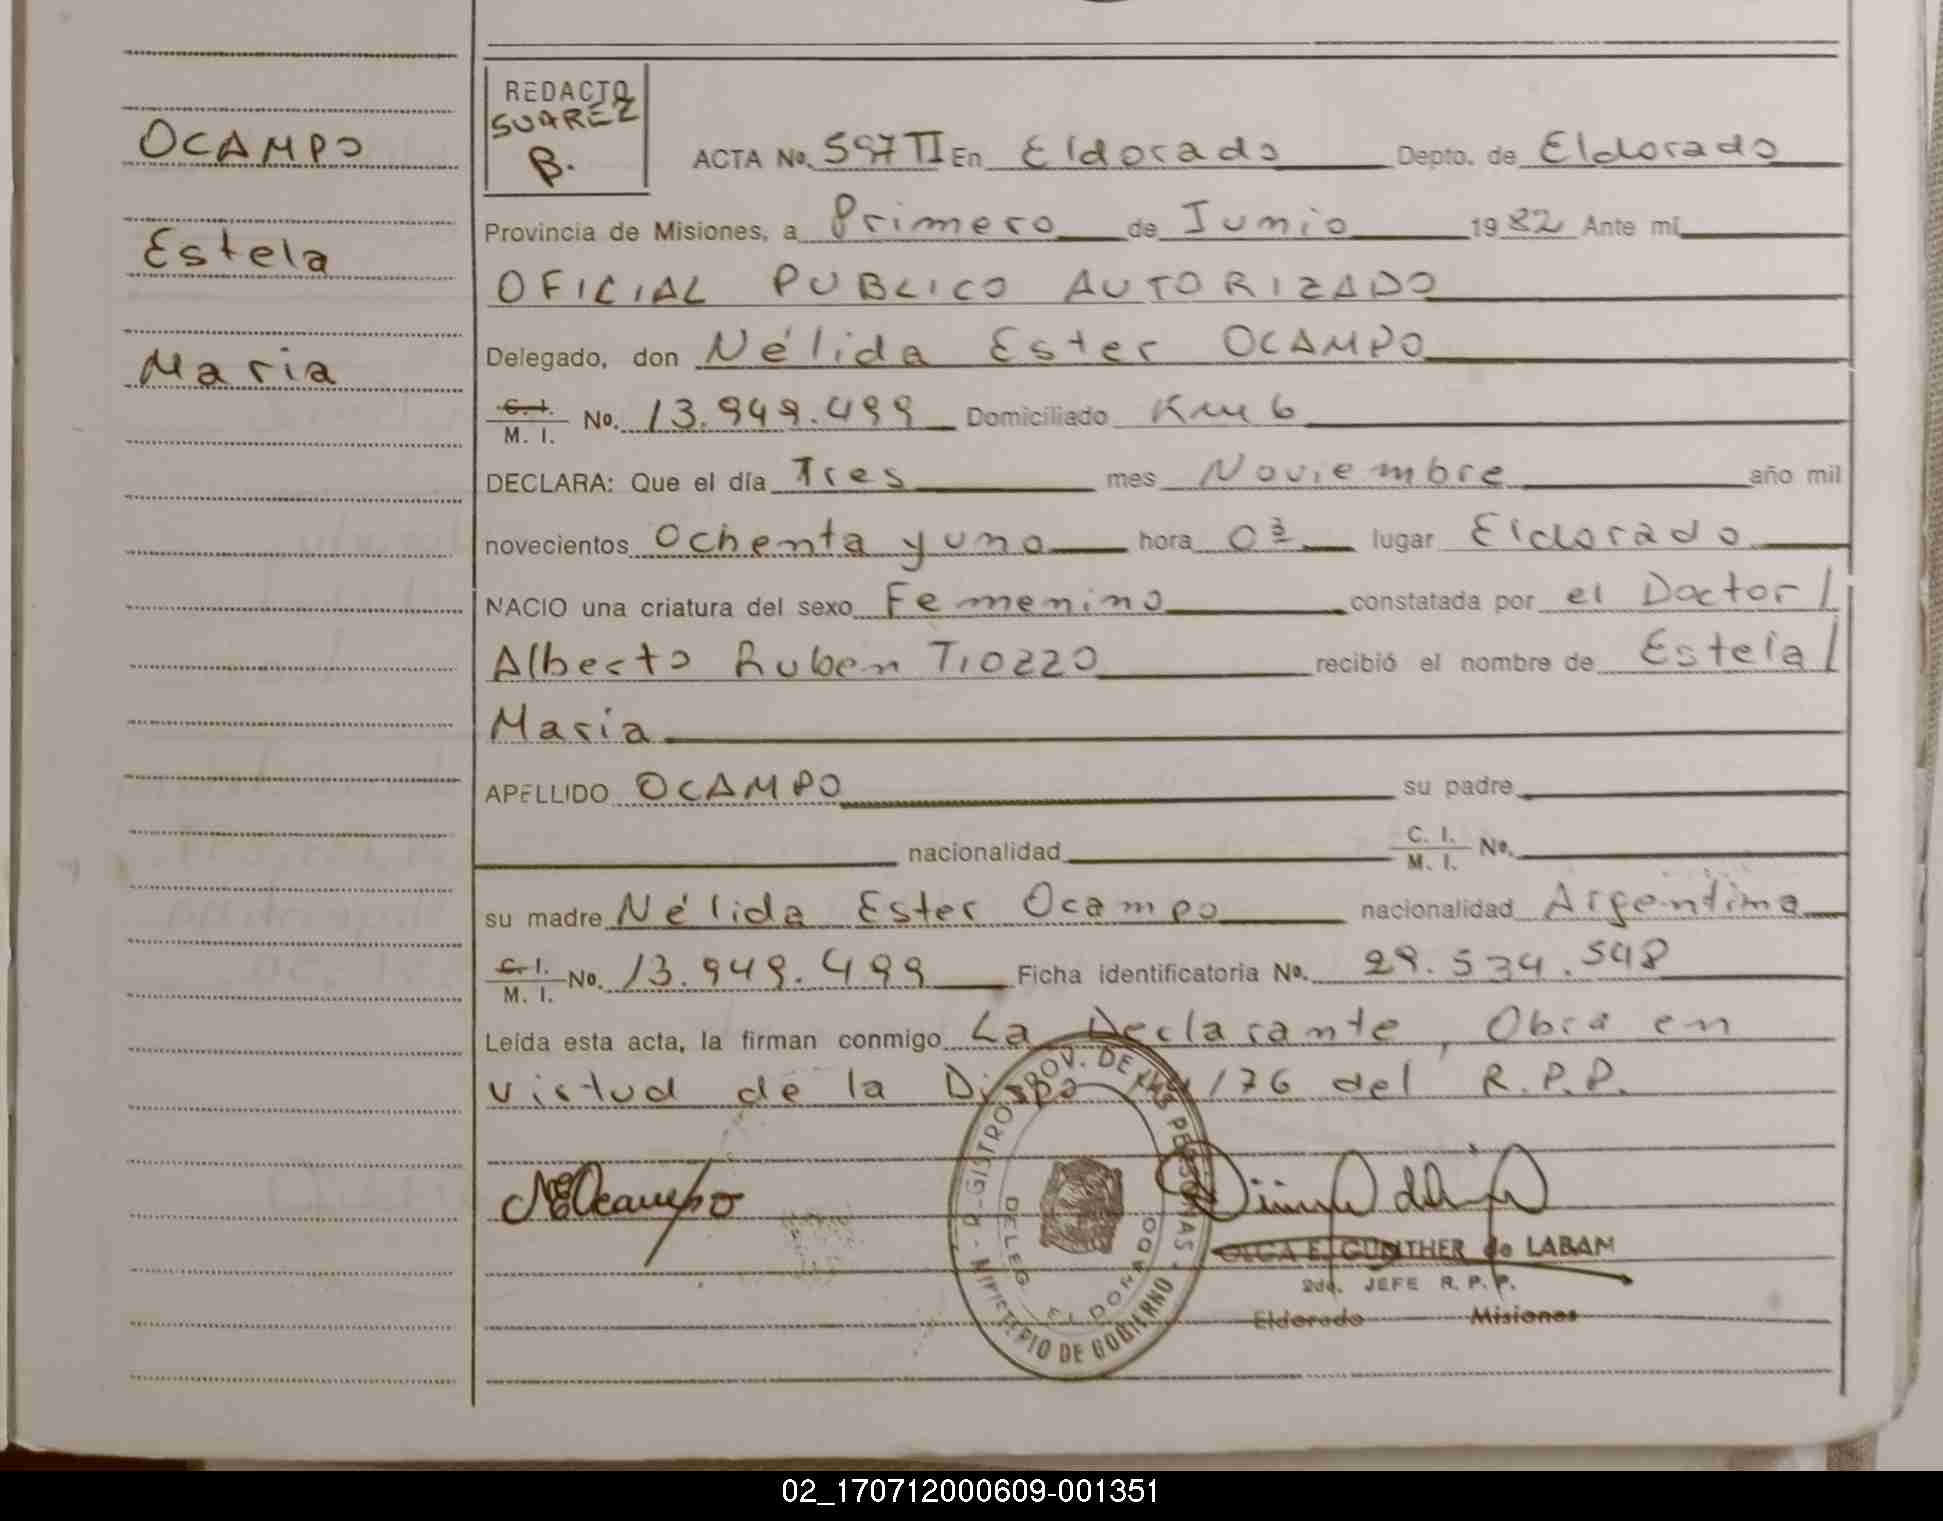 OCAMPO
Estela
Maria
REDACTO
SUAREZ
B.
ACTA No. 597 II En Eldorado Depto. de Eldorado
Provincia de Misiones, a Primero de Junio 1982 Ante mí
OFICIAL PUBLICO AUTORIZADO
Delegado, don Nélida Ester OCAMPO
C. I. / M. I. No. 13.949.499 Domiciliado Km 6
DECLARA: Que el día Tres mes Noviembre año mil
novecientos Ochenta y uno hora lugar Eldorado
NACIO una criatura del sexo Femenino constatada por el Doctor/
Alberto Ruben TIOZZO recibió el nombre de Estela/
Maria
APELLIDO OCAMPO su padre
nacionalidad C. I. / M. I. No.
su madre Nélida Ester Ocampo nacionalidad Argentina
C. I. / M. I. No. 13.949.499 Ficha identificatoria No. 29.534.548
Leída esta acta, la firman conmigo La Declarante, Obra en
virtud de la /76 del R.P.P.
NEOcampo
MINISTERIO DE GOBIERNO
DELEG. ELDORADO
OLGA E. GUNTHER de LABAM
2da. JEFE R. P. P.
Eldorado Misiones
02_170712000609-001351